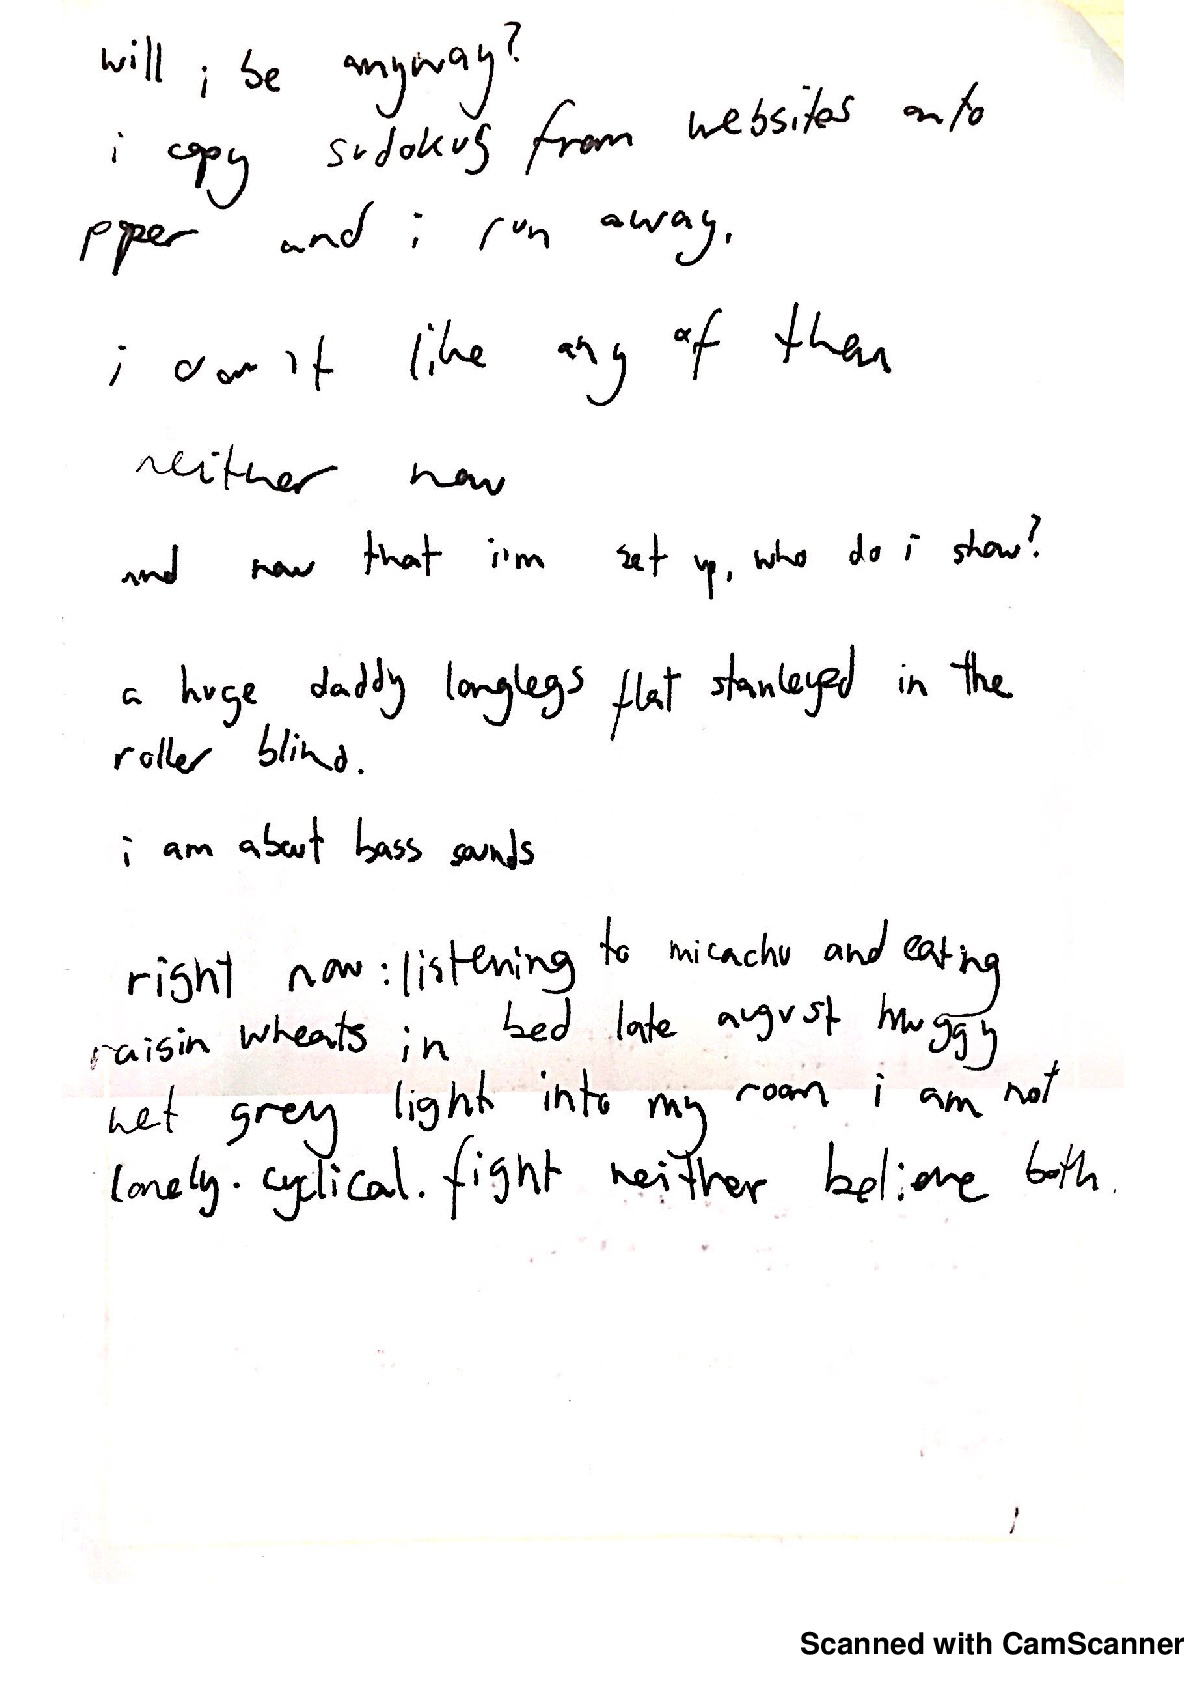 will i be anyway?
i copy sudokus from websites onto
paper and i run away.
i don't like any of them
neither now
and now that i'm set up, who do i show?
a huge daddy longlegs flat stanleyed in the
roller blind.
i am about bass sounds
right now: listening to micachu and eating
raisin wheats in bed late august muggy
wet grey light into my room i am not
lonely. cyclical. fight neither believe both.
Scanned with CamScanner